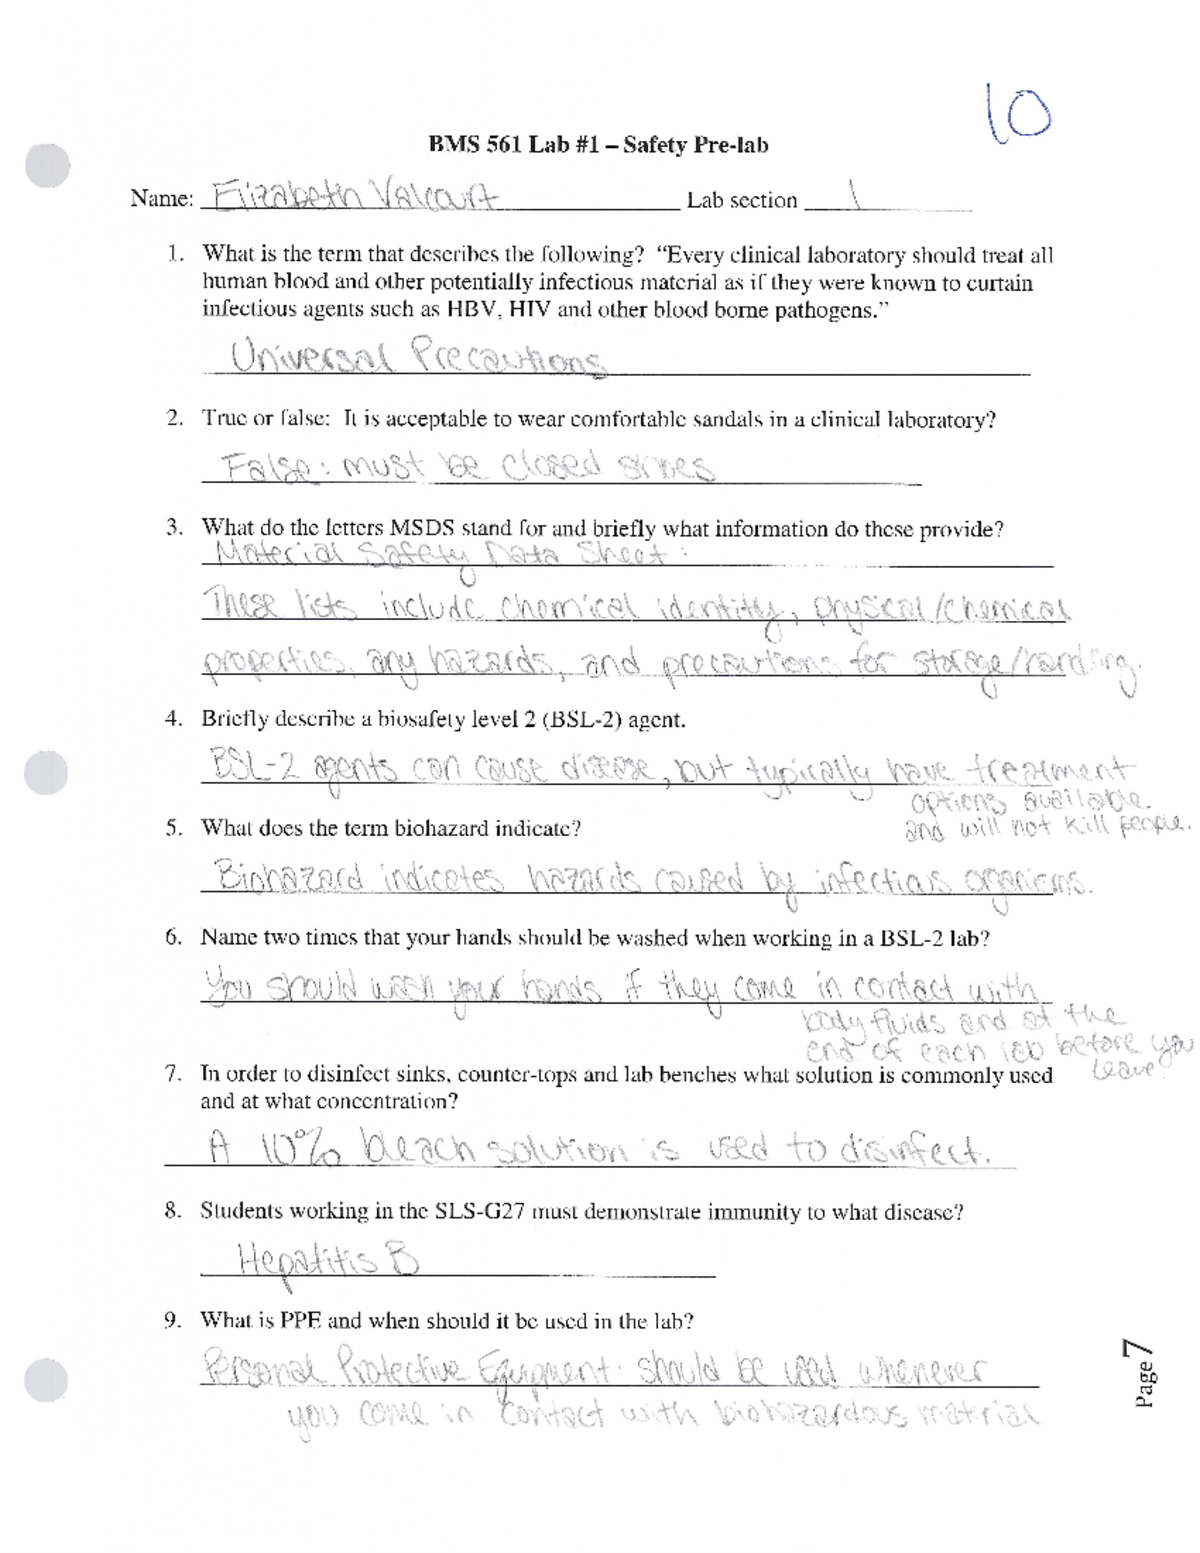 10
BMS 561 Lab #1 – Safety Pre-lab
Name: Elizabeth Valcourt Lab section 1
1. What is the term that describes the following? “Every clinical laboratory should treat all
human blood and other potentially infectious material as if they were known to curtain
infectious agents such as HBV, HIV and other blood borne pathogens.”
Universal Precautions
2. True or false: It is acceptable to wear comfortable sandals in a clinical laboratory?
False: must be closed shoes
3. What do the letters MSDS stand for and briefly what information do these provide?
Material Safety Data Sheet:
These lists include chemical identity, physical/chemical
properties, any hazards, and precautions for storage/handling.
4. Briefly describe a biosafety level 2 (BSL-2) agent.
BSL-2 agents can cause disease, but typically have treatment
options available
and will not kill people.
5. What does the term biohazard indicate?
Biohazard indicates hazards caused by infectious organisms.
6. Name two times that your hands should be washed when working in a BSL-2 lab?
You should wash your hands if they come in contact with
body fluids and at the
end of each lab before you
leave
7. In order to disinfect sinks, counter-tops and lab benches what solution is commonly used
and at what concentration?
A 10% bleach solution is used to disinfect.
8. Students working in the SLS-G27 must demonstrate immunity to what disease?
Hepatitis B
9. What is PPE and when should it be used in the lab?
Personal Protective Equipment: should be used whenever
you come in contact with biohazardous material
Page 7